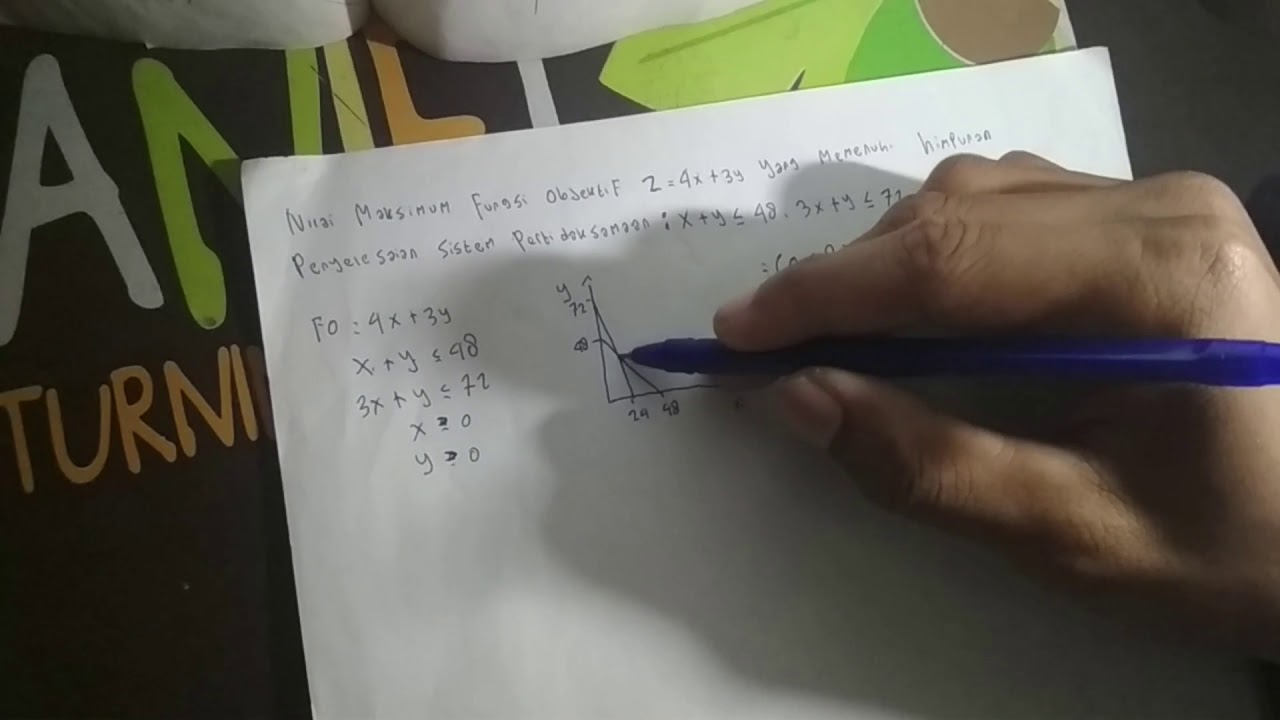 Nilai Maksimum Fungsi Objektif Z = 4x + 3y yang Memenuhi himpunan
Penyelesaian Sistem Pertidaksamaan : x + y ≤ 48, 3x + y ≤ 72
FO : 4x + 3y
x + y ≤ 48
3x + y ≤ 72
x ≥ 0
y ≥ 0
y
72
48
24 48
TURNI